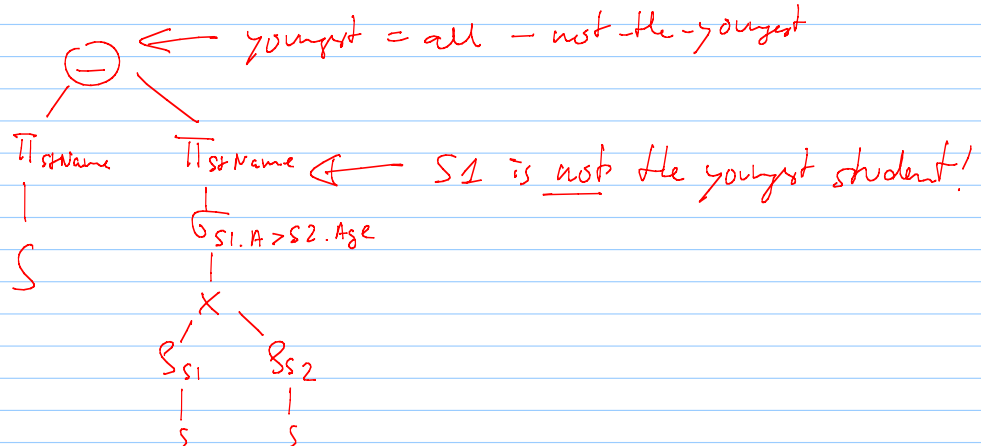 − ← youngest = all − not-the-youngest
π stName π stName ← S1 is not the youngest student!
σ S1.A>S2.Age
S
×
ρ S1 ρ S2
S S